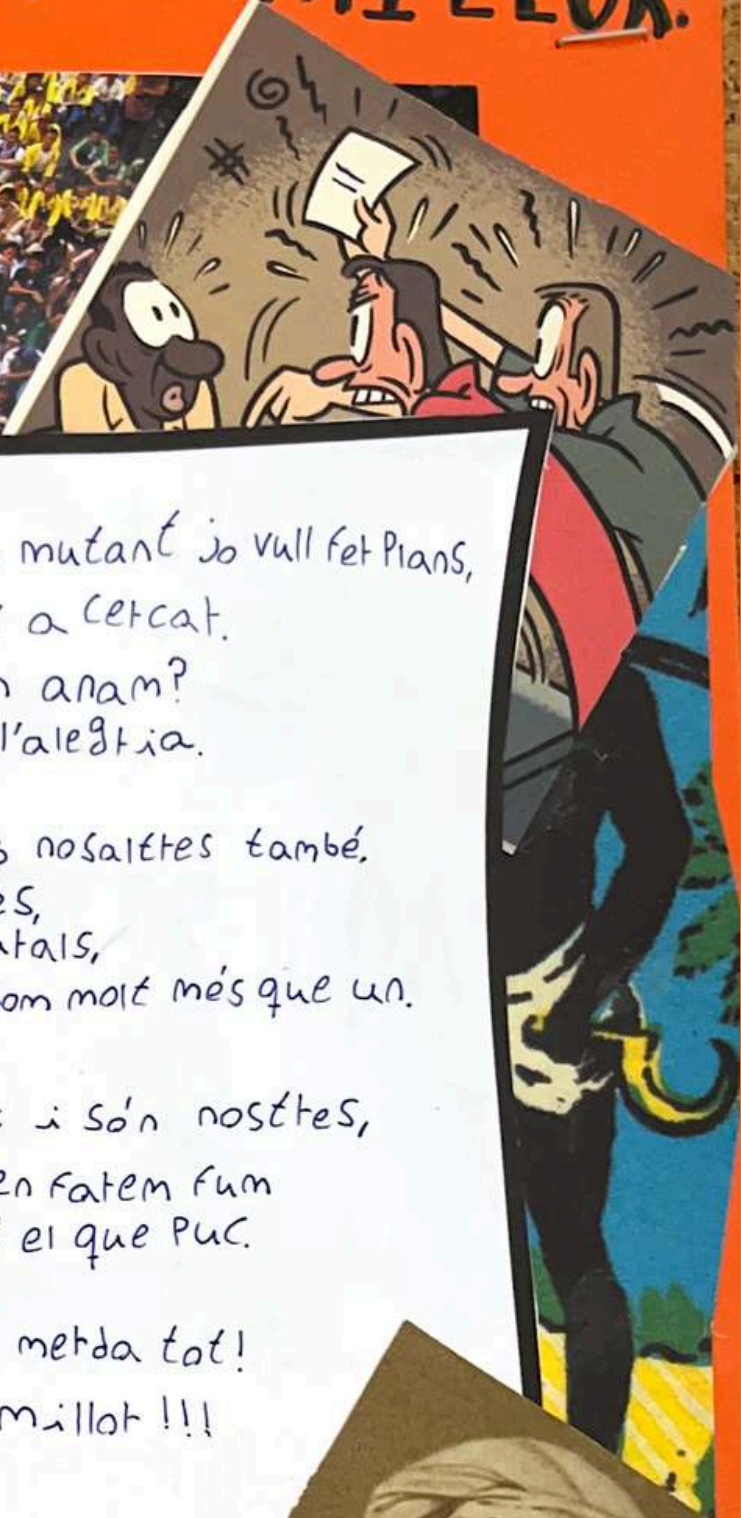 MILLOR.
mutant jo vull fer plans,
a cercat.
anam?
l'alegria.
nosaltres també.
molt més que un.
i són nostres,
en farem fum
el que puc.
merda tot!
millor !!!